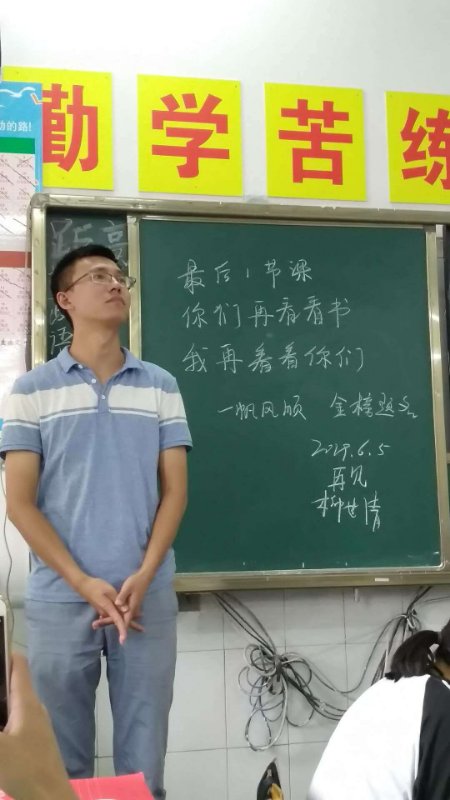 动的路!
勤学苦练
距高
语
最后1节课
你们再看看书
我再看看你们
一帆风顺 金榜题名
6.5
再见